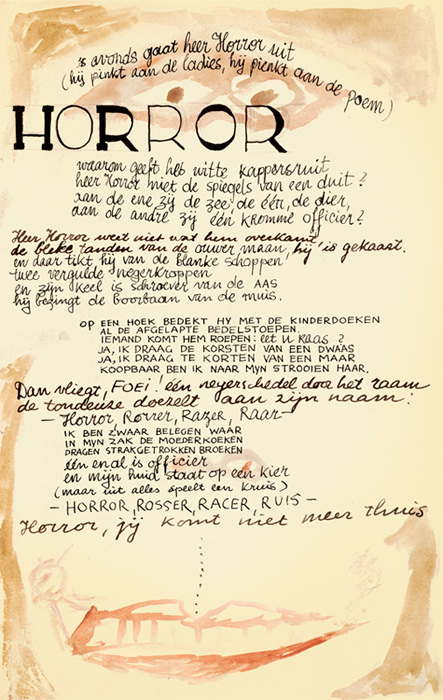 's avonds gaat heer Horror uit
(hij pinkt aan de ladies, hij pienkt aan de poem)
HORROR
waarom geeft het witte kappersruit
heer Horror niet de spiegels van een duit?
aan de ene zij de zee, de één, de dier,
aan de andre zij één kromme officier?
Heer Horror weet niet wat hem overkomt,
de bleke tanden van de ouwer maan, hij is gekaast.
en daar tikt hij van de blanke schoppen
twee vergulde negerkroppen
en zijn keel is schroever van de AAS
hij bezingt de boorbaan van de muis.
OP EEN HOEK BEDEKT HY MET DE KINDERDOEKEN
AL DE AFGELAPTE BEDELSTOEPEN.
IEMAND KOMT HEM ROEPEN: eet U KAAS?
JA, IK DRAAG DE KORSTEN VAN EEN DWAAS
JA, IK DRAAG TE KORTEN VAN EEN MAAR
KOOPBAAR BEN IK NAAR MYN STROOIEN HAAR.
Dan vliegt, FOEI! één negerschedel door het raam
de tondeuse doezelt aan zijn naam:
— Horror, Rorrer, Razer, Raar—
IK BEN ZWAAR BELEGEN WAAR
IN MYN ZAK DE MOEDERKOEKEN
DRAGEN STRAKGETROKKEN BROEKEN
één en al is officier
en mijn huid staat op een kier
(maar uit alles speelt een kruis)
— HORROR, ROSSER, RACER, RUIS —
Horror, jij komt niet meer thuis